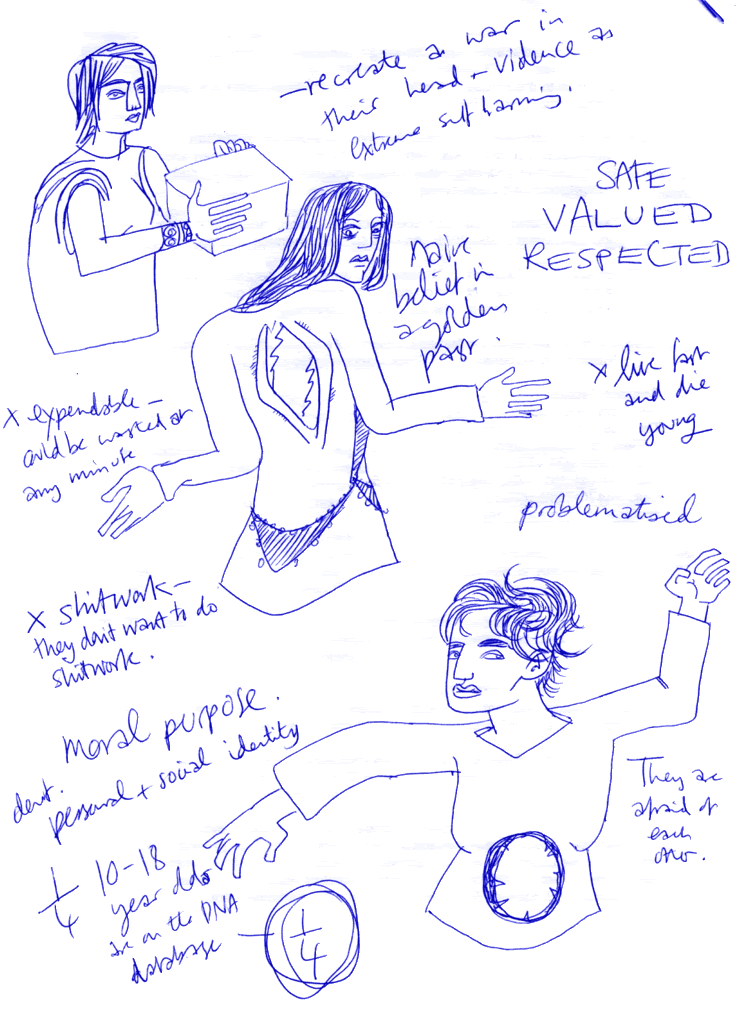 – recreate a war in
their head – violence as
extreme self harming.
SAFE
VALUED
RESPECTED
naive
belief in
a golden
past.
x live fast
and die
young
x expendable –
could be wasted at
any minute
problematised
x shitwork –
they don't want to do
shitwork.
moral purpose.
personal + social identity
They are
afraid of
each
other.
1/4 10-18
year olds
are on the DNA
database
1/4